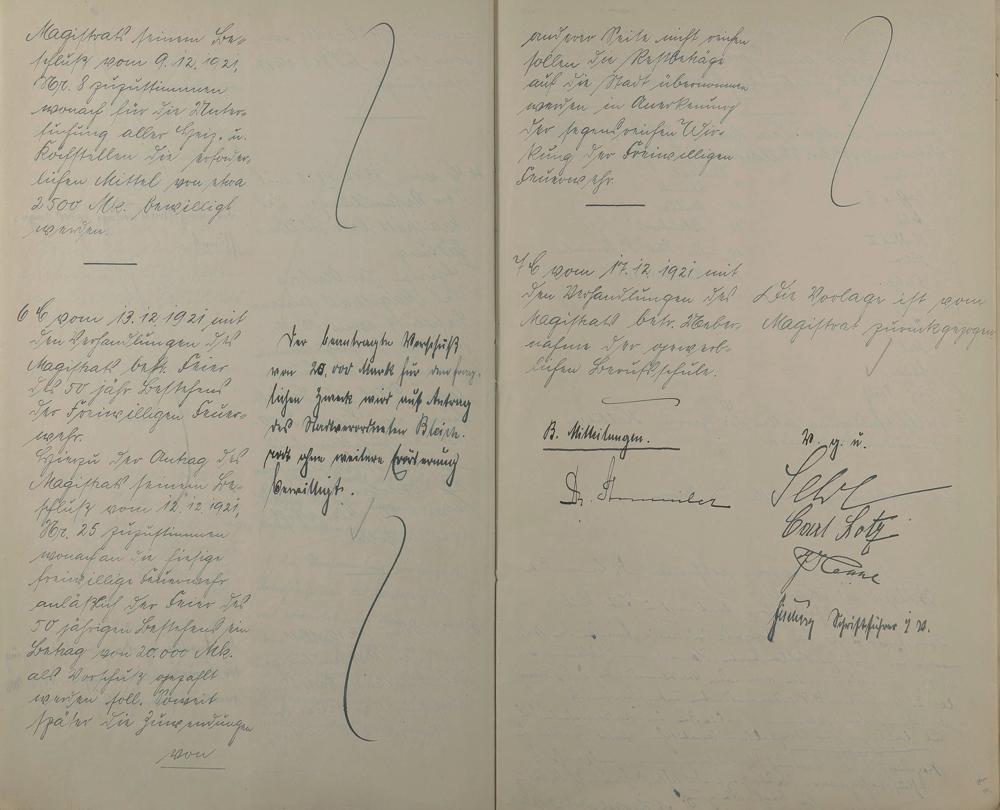 Magistrats seinem Be-
schluß vom 9.12.1921,
Nr. 8 zuzustimmen
wonach für die Unter-
suchung aller Heiz- u.
Kochstellen die erforder-
lichen Mittel von etwa
2500 Mk. bewilligt
werden.
6 C vom 13.12.1921 mit
den Verhandlungen des
Magistrats betr. Feier
des 50 jähr. Bestehens
der Freiwilligen Feuer-
wehr.
Hierzu der Antrag des
Magistrats seinem Be-
schluß vom 12.12.1921,
Nr. 25 zuzustimmen
wonach an die hiesige
freiwillige Feuerwehr
anläßlich der Feier des
50 jährigen Bestehens ein
Betrag von 20.000 Mk.
als Vorschuß gezahlt
werden soll. Soweit
später die Zuwendungen
von
Der beantragte Vorschuß
von 20.000 Mark für den frag-
lichen Zweck wird auf Antrag
des Stadtverordneten Bleich-
rodt ohne weitere Erörterung
bewilligt.
anderer Seite nicht reichen
sollen die Restbeträge
auf die Stadt übernommen
werden in Anerkennung
der segensreichen Wir-
kung der Freiwilligen
Feuerwehr.
7 C vom 17.12.1921 mit
den Verhandlungen des
Magistrats betr. Ueber-
nahme der gewerb-
lichen Berufsschule.
Die Vorlage ist vom
Magistrat zurückgezogen
B. Mitteilungen.
V. g. u.
Dr.
Carl Lotz
Schriftführer i. V.